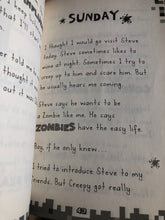 SUNDAY
I thought I would go visit
Steve. Steve sometimes likes to
at night. Sometimes I try to
creep up to him and scare him. But
he usually hears me coming.
Steve says he wants to be
a Zombie like me. He says
ZOMBIES have the easy life.
Boy, if he only knew...
I tried to introduce Steve to my
friends. But Creepy got really